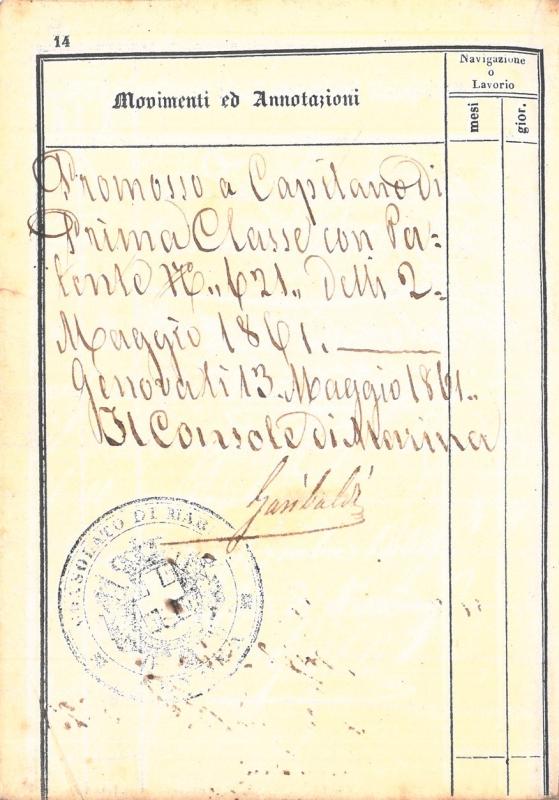 14
Movimenti ed Annotazioni
Navigazione
o
Lavorio
mesi
gior.
Promosso a Capitano di
Prima Classe con Pa-
tente N.° 621,, delli 2
Maggio 1861.
Genova li 13 Maggio 1861.
Il Console di Marina
Garibaldi
CONSOLATO DI MAR